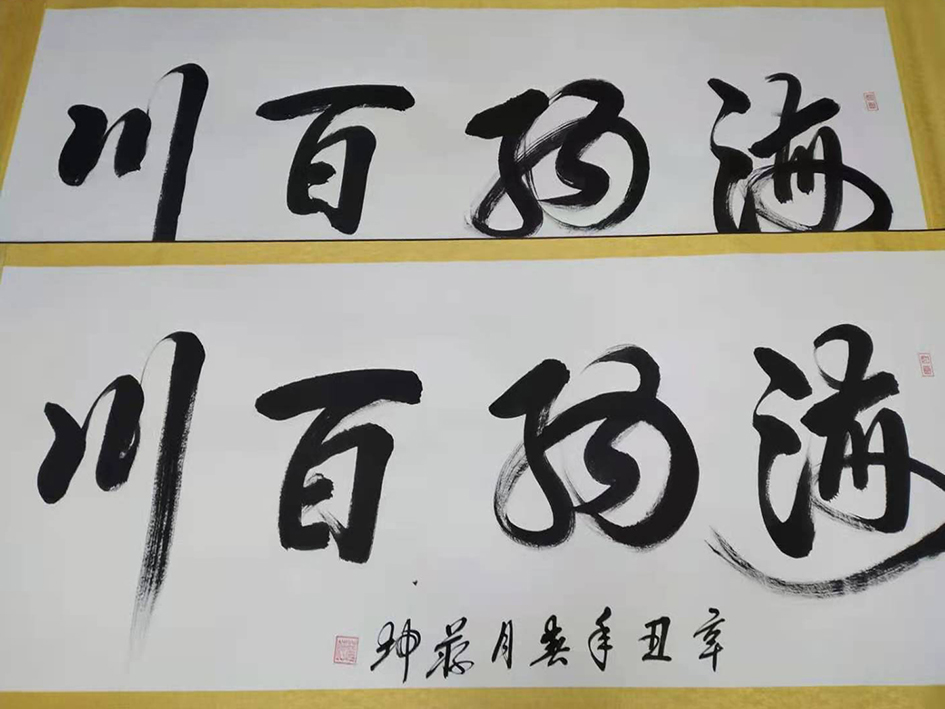 海纳百川
海纳百川
辛丑年春月蒋